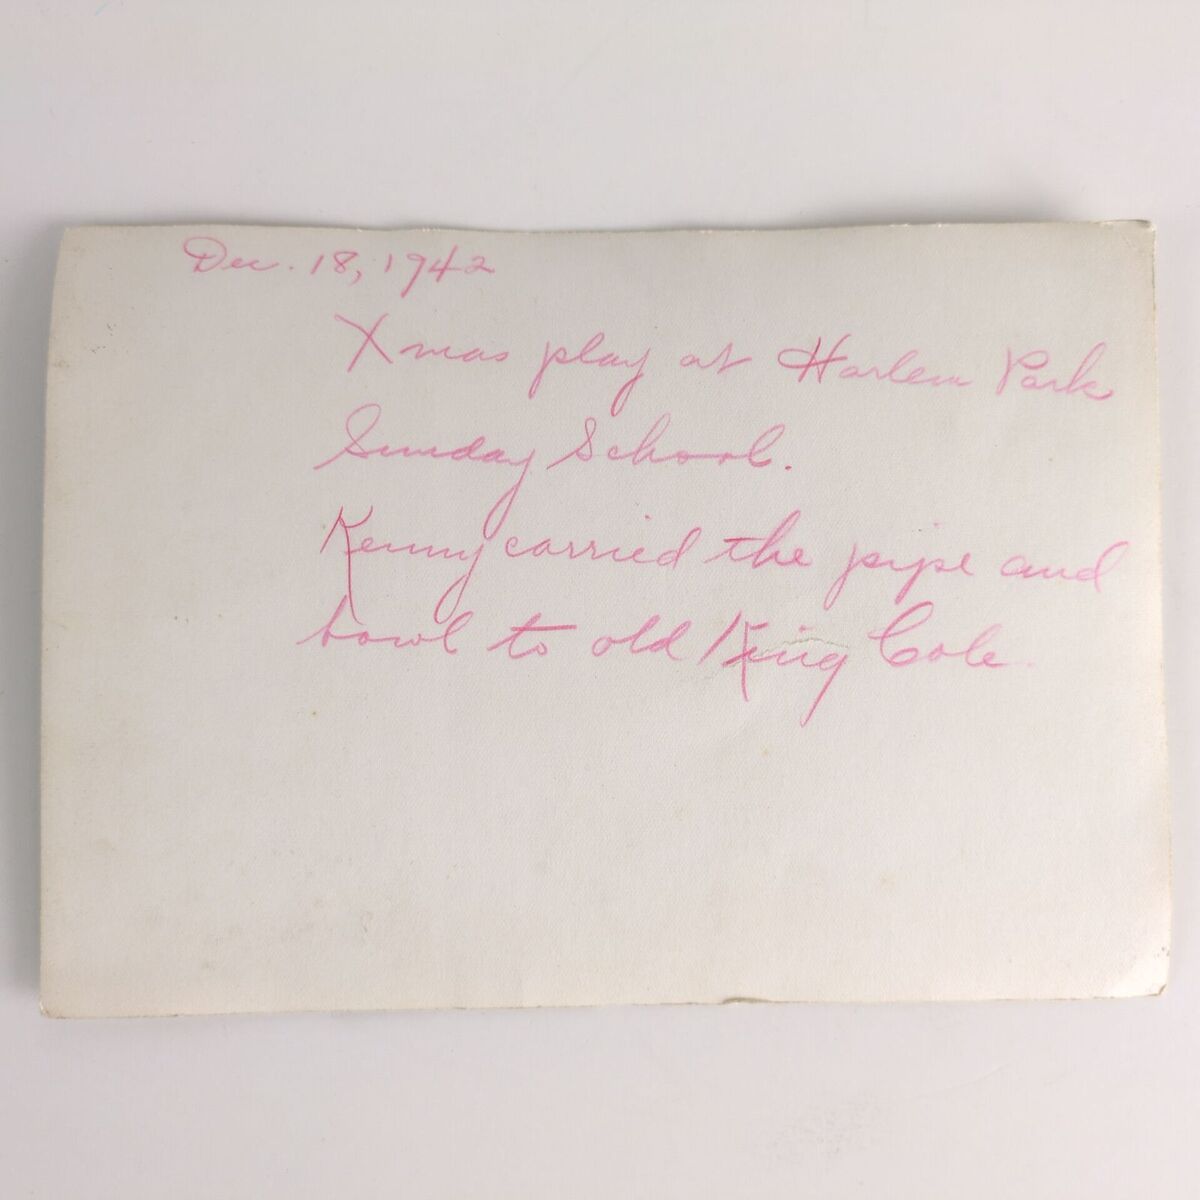 Dec. 18, 1942
Xmas play at Harlem Park
Sunday School.
Kenny carried the pipe and
bowl to old King Cole.